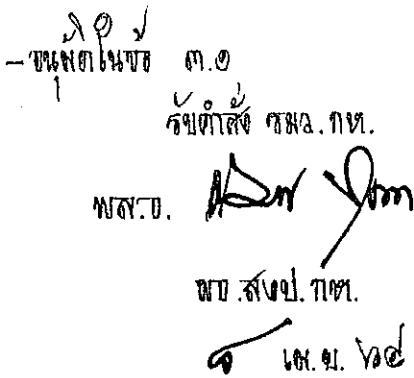 - อนุมัติในข้อ ๓.๑
รับคำสั่ง รมว.กห.
พล.อ.
ผอ.สงป.กห.
๘ เม.ย. ๖๔